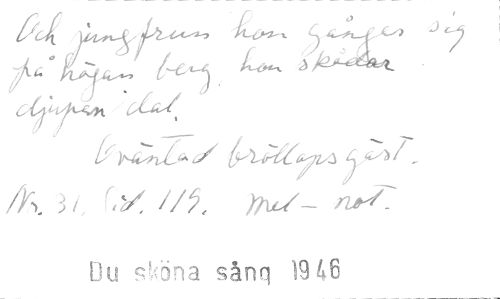 Och jungfrun hon gångar sig
på högan berg, hon skådar
djupan dal.
Oväntad bröllopsgäst.
Nr. 31. Sid. 119. Mel-not.
Du sköna sång 1946